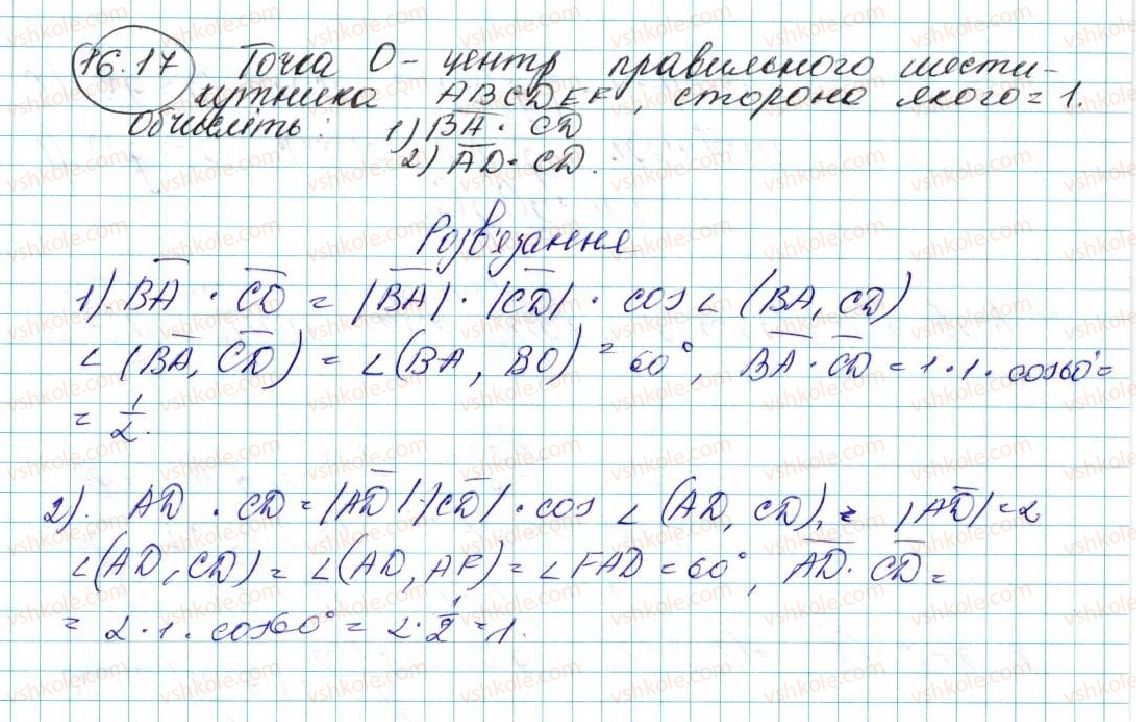 16.17 Точка О - центр правильного шести-
кутника ABCDEF, сторона якого = 1.
Обчисліть: 1) BA · CD
2) AD · CD.
Розв'язання
1). BA · CD = |BA| · |CD| · cos ∠ (BA, CD)
∠ (BA, CD) = ∠(BA, BO) = 60°, BA · CD = 1 · 1 · cos60° =
= 1/2.
2). AD · CD = |AD| · |CD| · cos ∠ (AD, CD), = |AD| = 2
∠(AD, CD) = ∠(AD, AF) = ∠FAD = 60°, AD · CD =
= 2 · 1 · cos60° = 2 · 1/2 = 1.